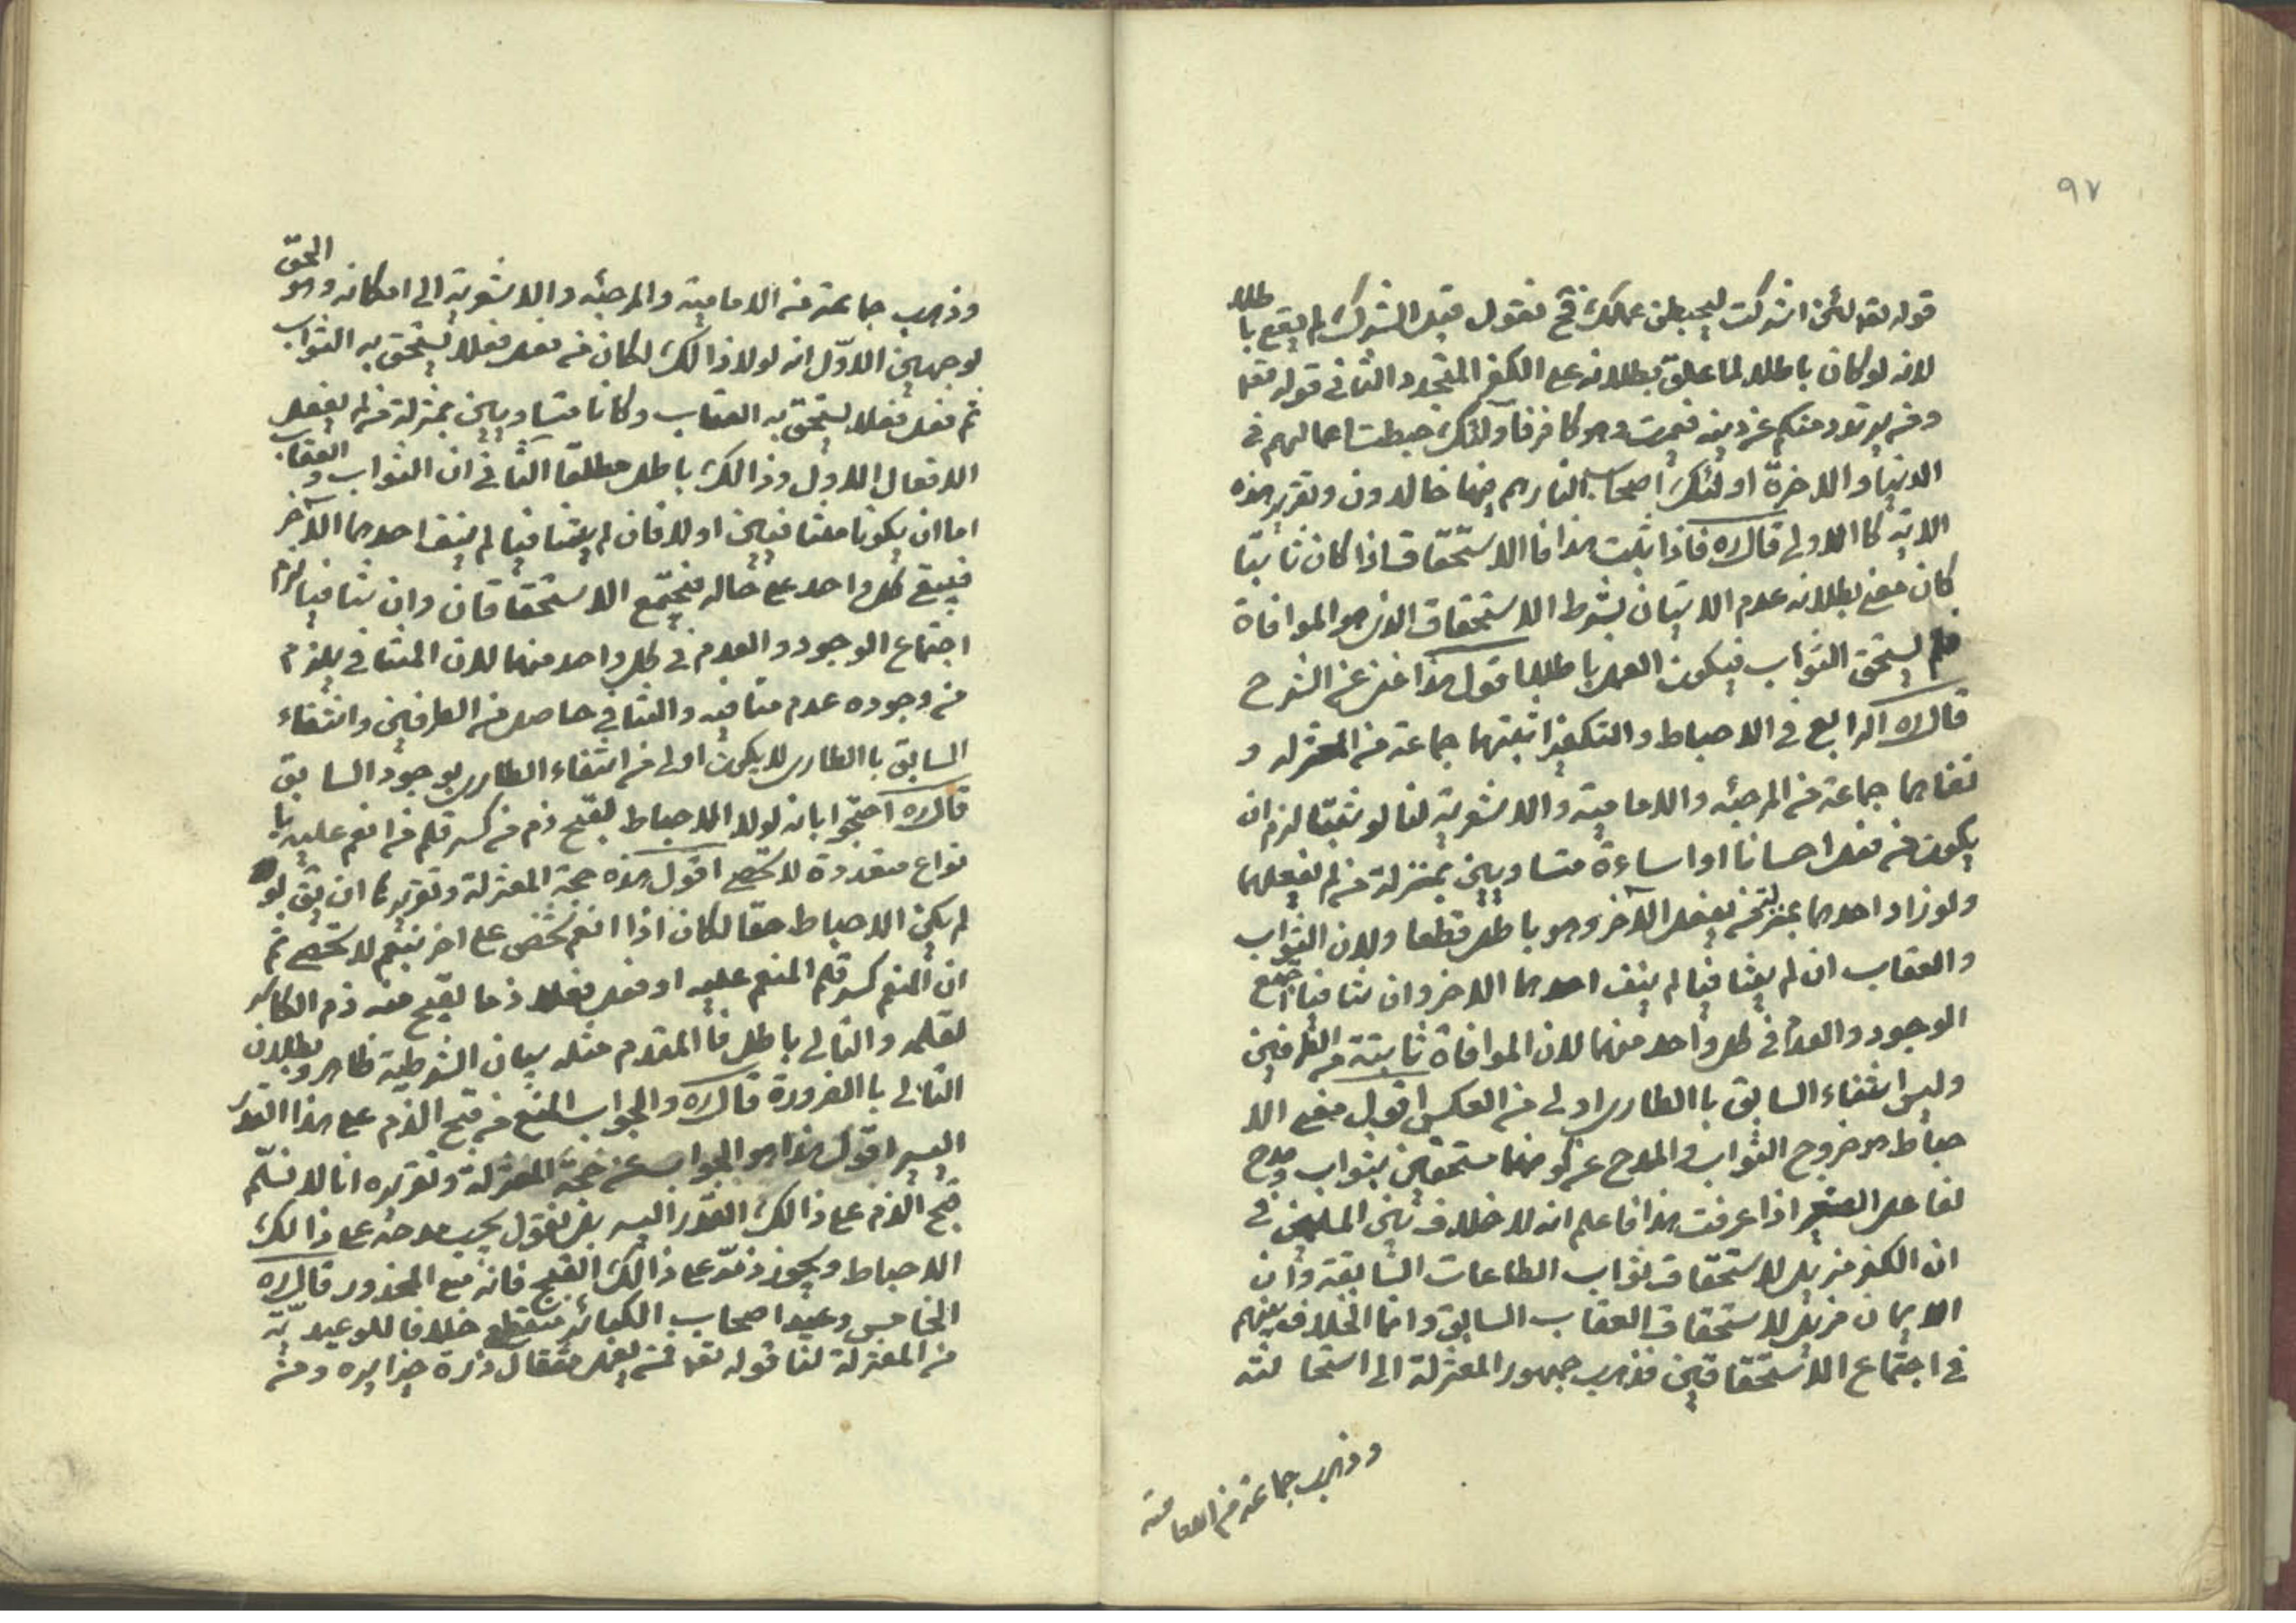 ٩٧
قوله تعه لئن اشركت ليحبطن عملك فح نقول قبل الشرك لم يقع باطلا
لانه لو كان باطلا لما علق بطلانه على الكفر المتجدد الثانى قوله تعه
ومن يرتدد منكم عن دينه فيمت وهو كافر فاولئك حبطت اعمالهم فى
الدنيا والاخرة اولئك اصحاب النار هم فيها خالدون وتقرير هذه
الاية كا الاولى قال ره فاذا ثبت هذا فا الاستحقاق اذا كان ثابتا
كان معنى بطلانه عدم الاتيان بشرط الاستحقاق الذى هو الموافاة
فلم يستحق الثواب فيكون العمل باطلا اقول هذا غنى عن الشرح
قال ره الرابع فى الاحباط والتكفير اثبتهما جماعة من المعتزله و
نفاهما جماعة من المرجئه والامامية والاشعرية لنا لو ثبتا لزم ان
يكون من فعل احسانا او اساءة متساويين بمنزلة من لم يفعلهما
ولو زاد احدهما بمنزلة من لم يفعل الآخر وهو باطل قطعا ولان الثواب
والعقاب ان لم يتنافيا لم ينف احدهما الاخر وان تنافيا اجتمع
الوجود والعدم فى كل واحد منهما لان الموافاة ثابتة من الطرفين
وليس انتفاء السابق با الطارى اولى من العكس اقول معنى الا
حباط هو خروج الثواب والمدح عن كونهما مستحقين بثواب ومدح
لفاعل الصغير اذا عرفت هذا فاعلم انه لا خلاف بين المسلمين فى
ان الكفر مزيل لاستحقاق ثواب الطاعات السابقة وان
الايمان مزيل لاستحقاق العقاب السابق وانما الخلاف بينهم
فى اجتماع الاستحقاقين فذهب جمهور المعتزلة الى استحالته
وذهب جماعة من الامامية
وذهب جماعة من الامامية والمرجئه والاشعرية الى امكانه وهو الحق
لوجهين الاول انه لولا ذالك لكان من فعل فعلا يستحق به الثواب
ثم فعل فعلا يستحق به العقاب وكانا متساويين بمنزلة من لم يفعل
الافعال الاول وذالك باطل مطلقا الثانى ان الثواب والعقاب
اما ان يكونا متنافيين اولا فان لم يتنافيا لم ينف احدهما الآخر
فيبقى كل واحد على حاله فيجتمع الاستحقاقان وان تنافيا لزم
اجتماع الوجود والعدم فى كل واحد منهما لان المتنافى يلزم
من وجوده عدم منافيه والتنافى حاصل من الطرفين وانتفاء
السابق با الطارى لا يكون اولى من انتفاء الطارى بوجود السابق
قال ره احتجوا بانه لولا الاحباط لقبح ذم من كسر قلم من انعم عليه با
نواع متعددة لا تحصى اقول هذه حجة المعتزلة وتقريرها ان يق لو
لم يكن الاحباط حقا لكان اذا انعم شخص على اخر بنعم لا تحصى ثم
ان المنعم كسر قلم المنعم عليه او فعل فعلا ذما لقبح منه ذم الكاسر
لقلمه والتالى باطل فا المقدم مثله بيان الشرطية ظاهر وبطلان
التالى با الضرورة قال ره والجواب المنع من قبح الذم على هذا القدر
اليسير اقول هذا هو الجواب عن حجة المعتزلة وتقريره انا لا نسلم
قبح الذم على ذالك القدر اليسير بل نقول يجب مدحه على ذالك
الاحباط ويجوز ذمه على ذالك القبيح فانه منع المحذور قال ره
الخامس وعيد اصحاب الكبائر منقطع خلافا للوعيدية
من المعتزلة لنا قوله تعه فمن يعمل مثقال ذرة خيرا يره ومن